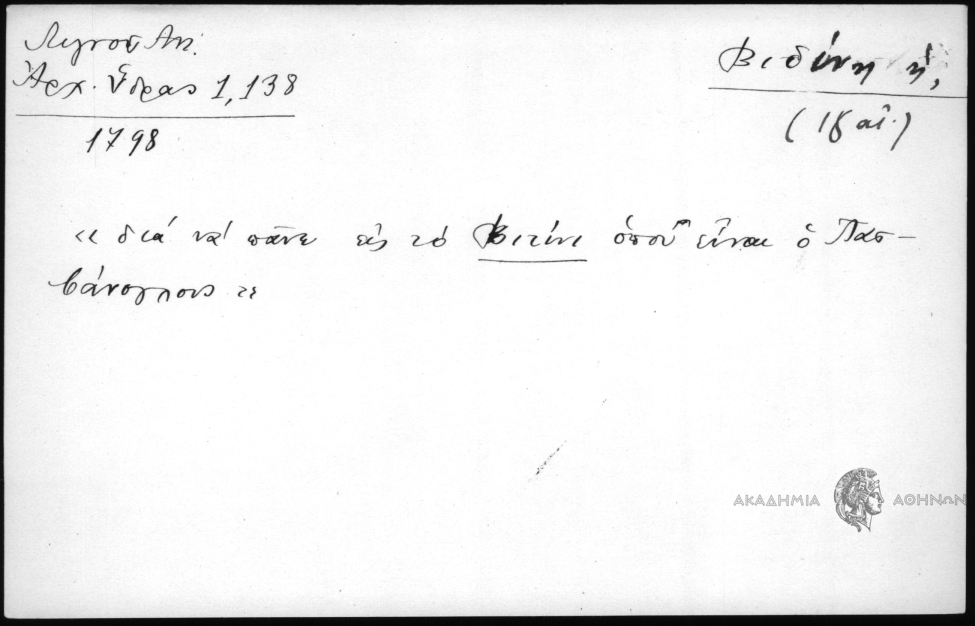 Λιγνοῦ Ἀν.
Ἀρχ. Ὕδρας 1,138
1798
Βιδίνη ἡ,
(18 αἰ.)
« διά νά πᾶνε εἰς τό Βιτίνι ὁποῦ εἶναι ὁ Πασ-
βάνογλους »
ΑΚΑΔΗΜΙΑ ΑΘΗΝΩΝ